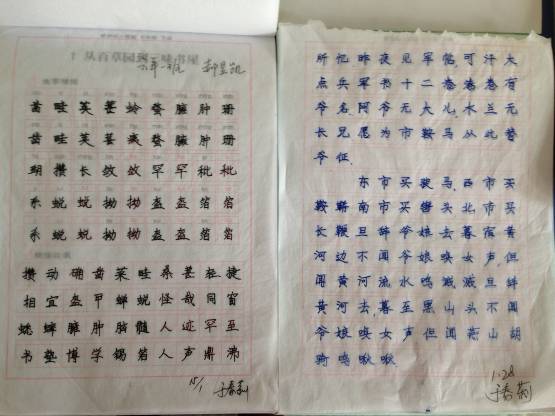 1 从百草园到三味书屋
菡 畦 英 葚 蛉 蝥 臃 肿 珊
菡 畦 英 葚 蝥 臃 肿 珊
瑚 攒 长 敛 敛 罕 罕 秕 秕
系 蜕 蜕 拗 拗 盔 盔 箔 箔
系 蜕 蜕 拗 拗 盔 盔 箔 箔
攒 动 确 凿 菜 畦 桑 葚 轻 捷
相 宜 盔 甲 蝉 蜕 怪 哉 同 窗
蟋 蟀 臃 肿 脑 髓 人 迹 罕 至
书 塾 博 学 锡 箔 人 声 鼎 沸
15/1 于春莉
所 忆 昨 夜 见 军 帖 可 汗 大
点 兵 军 书 十 二 卷 卷 卷 有
爷 名 阿 爷 无 大 儿 木 兰 无
长 兄 愿 为 市 鞍 马 从 此 替
爷 征
东 市 买 骏 马 西 市 买
鞍 鞯 南 市 买 辔 头 北 市 买
长 鞭 旦 辞 爷 娘 去 暮 宿 黄
河 边 不 闻 爷 娘 唤 女 声 但
闻 黄 河 流 水 鸣 溅 溅 旦 辞
黄 河 去 暮 至 黑 山 头 不 闻
爷 娘 唤 女 声 但 闻 燕 山 胡
骑 鸣 啾 啾
1.28
于春莉